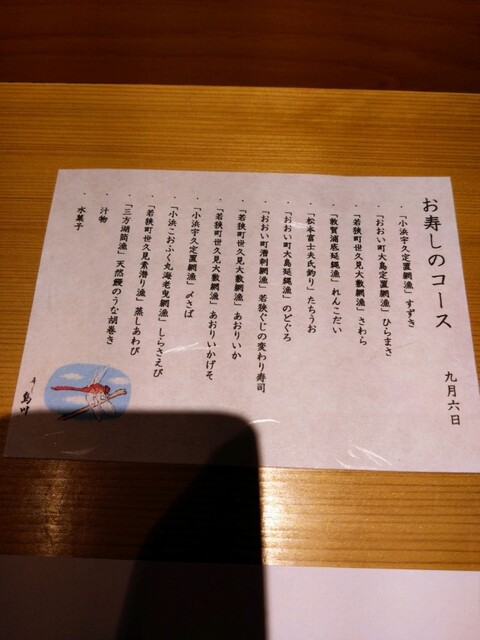 お寿しのコース
九月六日
・「小浜宇久定置網漁」すずき
・「おおい町大島定置網漁」ひらまさ
・「若狭町世久見大敷網漁」さわら
・「敦賀浦底延縄漁」れんこだい
・「松本富士夫氏釣り」たちうお
・「おおい町大島延縄漁」のどぐろ
・「おおい町漕刺網漁」若狭ぐじの変わり寿司
・「若狭町世久見大敷網漁」あおりいか
・「若狭町世久見大敷網漁」あおりいかげそ
・「小浜宇久定置網漁」〆さば
・「小浜こおふく丸海老曳網漁」しらさえび
・「若狭町世久見素潜り漁」蒸しあわび
・「三方湖筒漁」天然鰻のうな胡巻き
・汁物
・水菓子